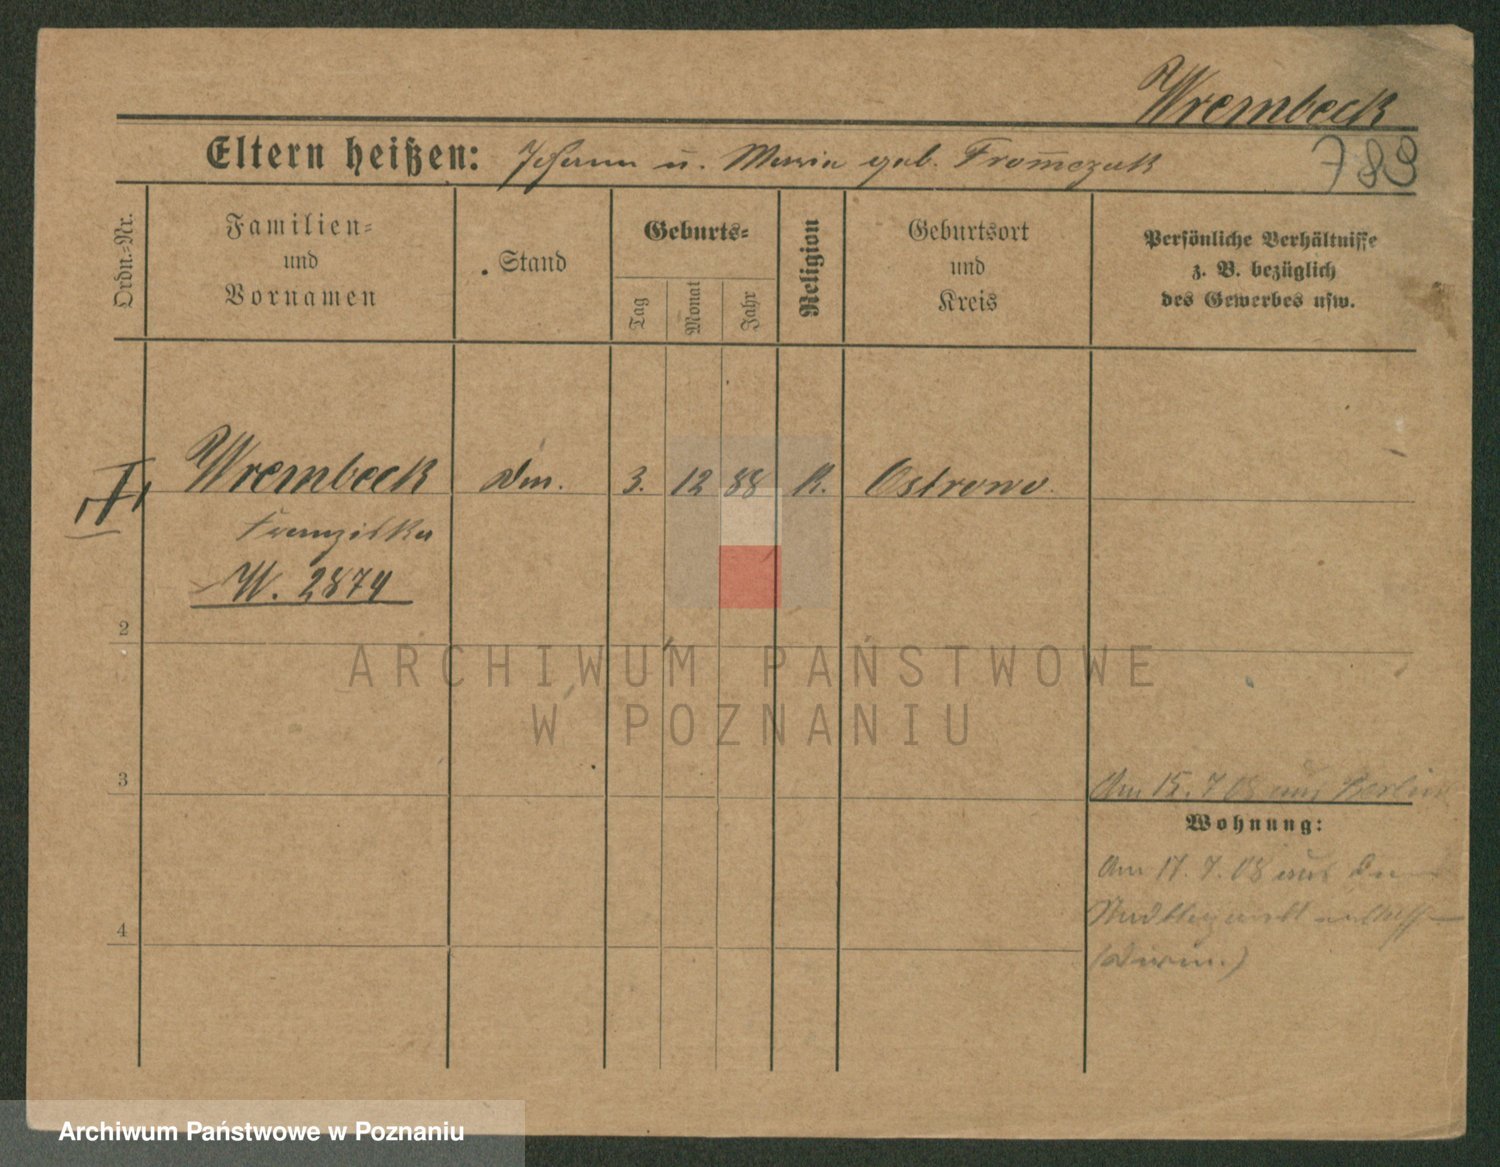 Wrembeck
Eltern heißen: Johann u. Maria geb. Fromczak
783
Ordn.-Nr.
Familien-
und
Vornamen
Stand
Geburts-
Tag
Monat
Jahr
Religion
Geburtsort
und
Kreis
Persönliche Verhältnisse
z. B. bezüglich
des Gewerbes usw.
Wrembeck 3. 12 88 K. Ostrowo.
Franziska
W. 2874
2
ARCHIWUM PAŃSTWOWE
W POZNANIU
3
Am 15.7 08 aus Berlin
Wohnung:
Am 17.7.08 aus
4
Archiwum Państwowe w Poznaniu